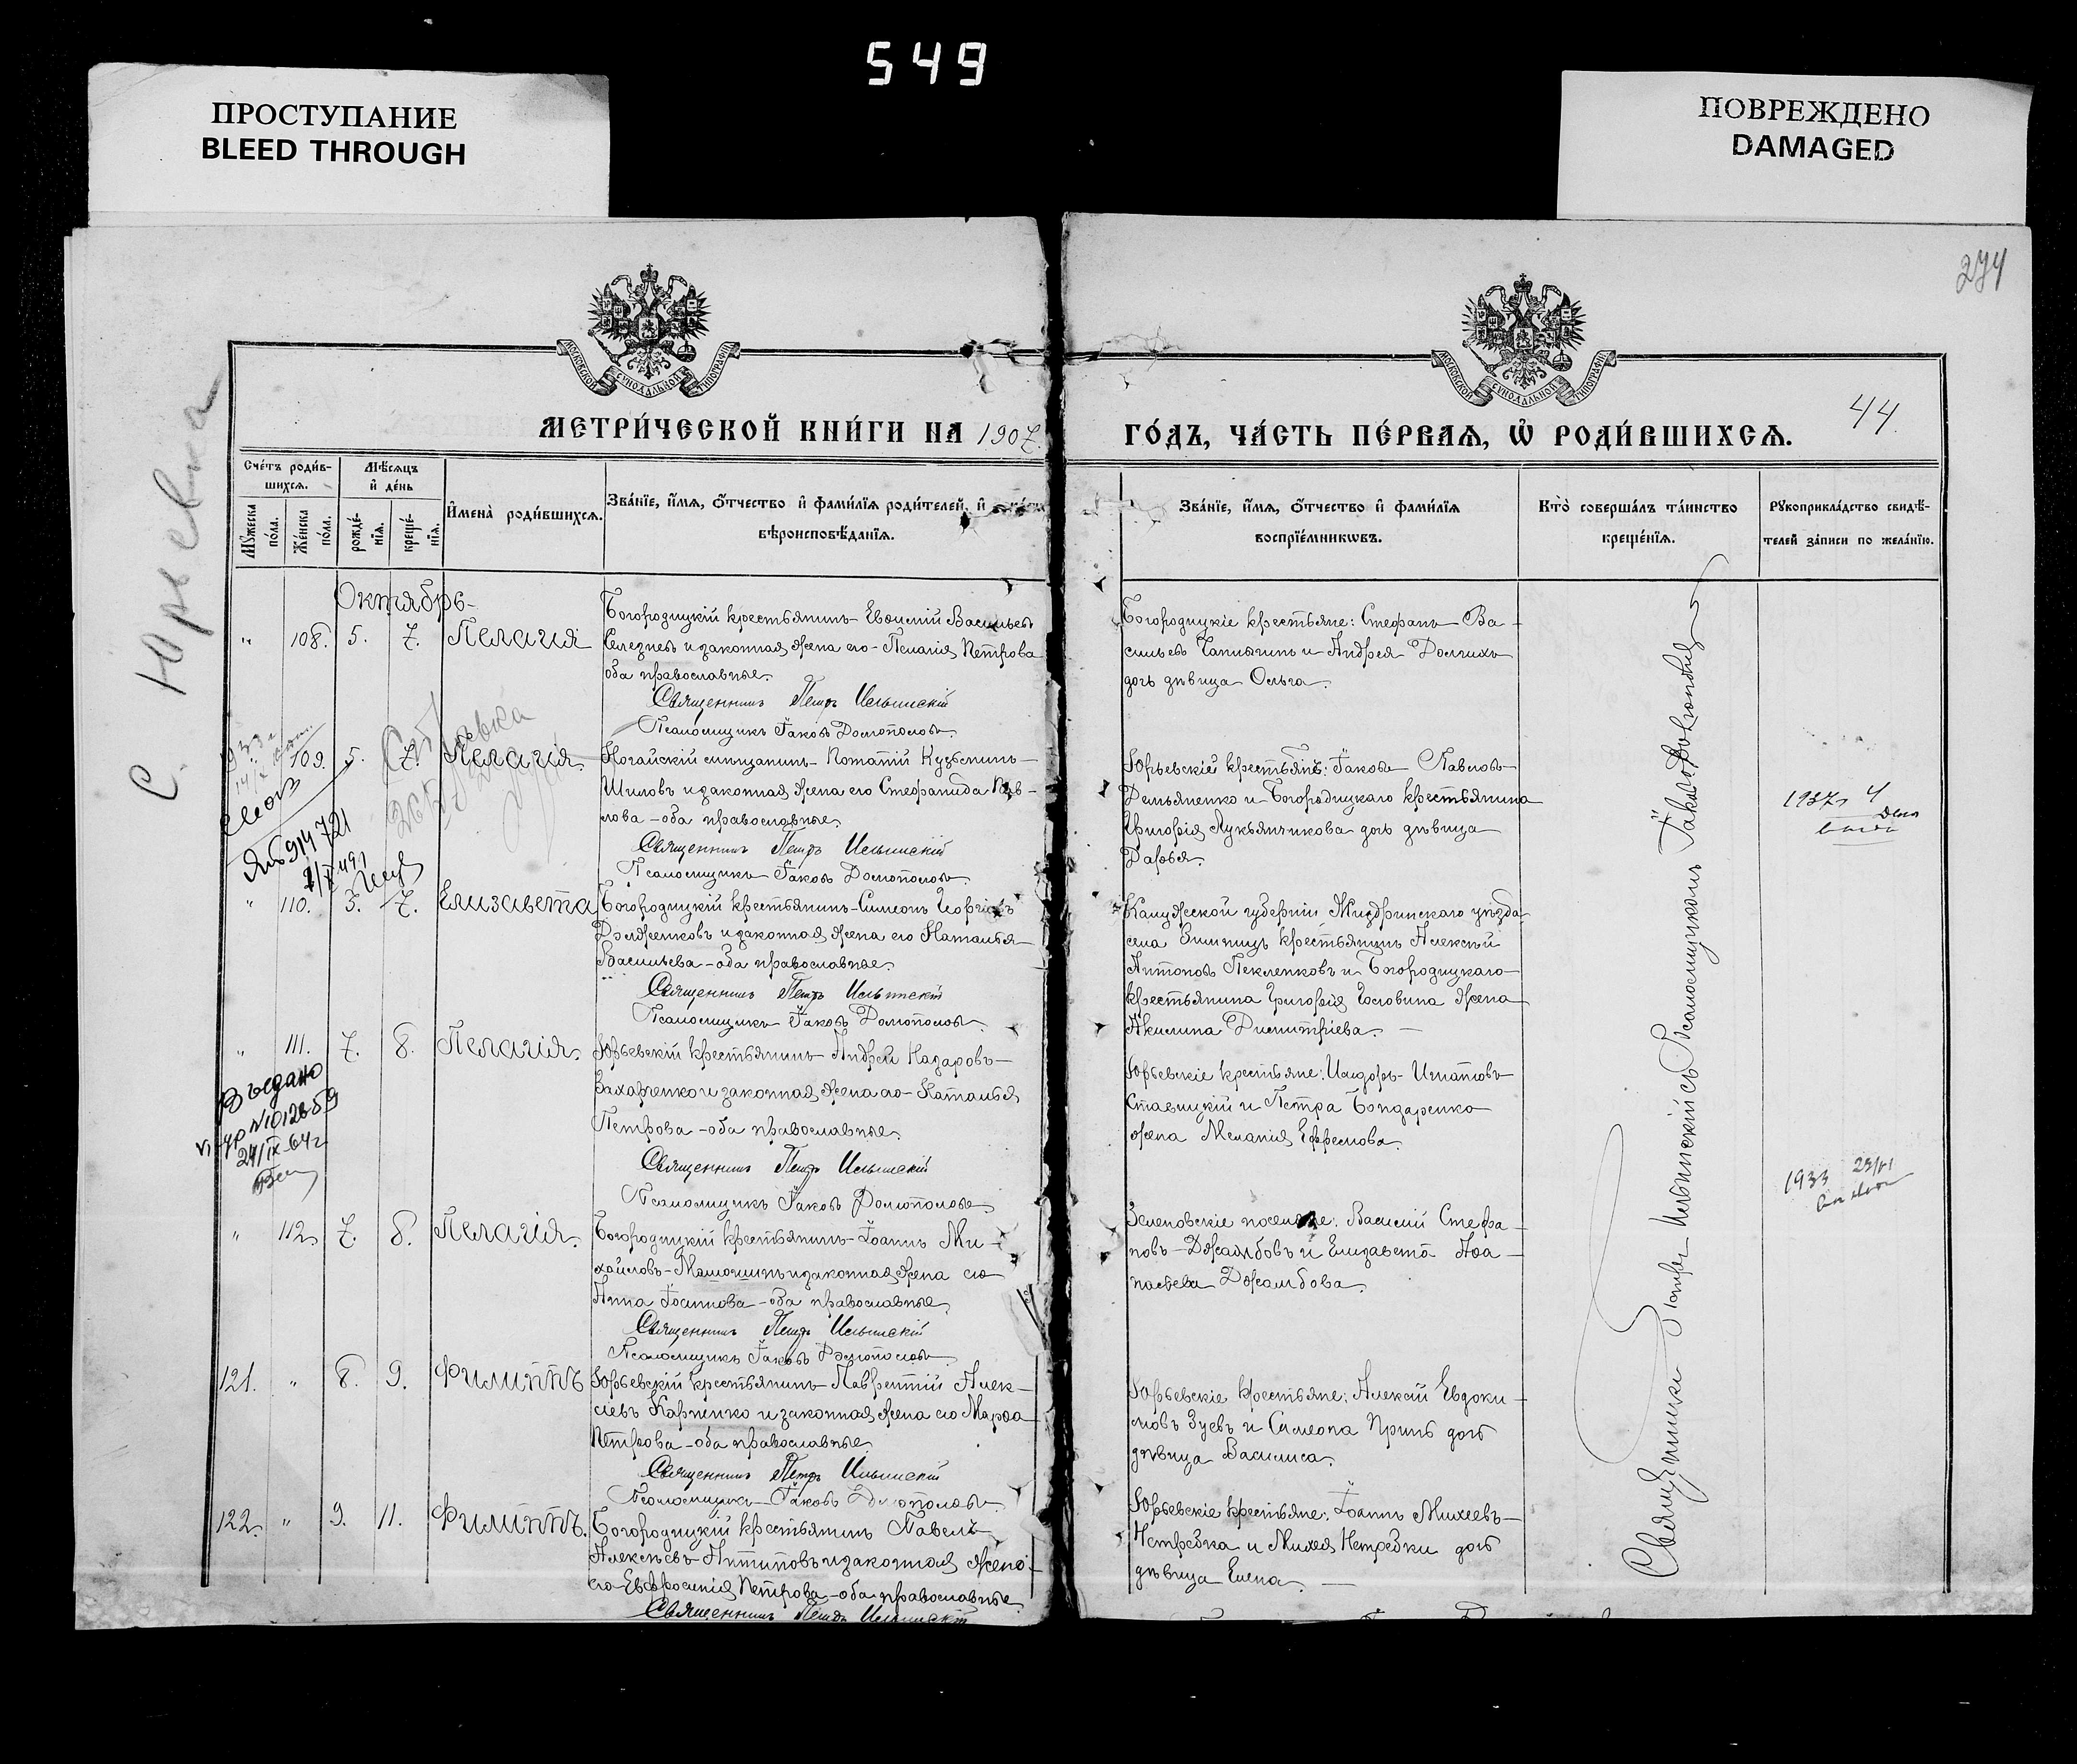 549
ПРОСТУПАНИЕ
BLEED THROUGH
ПОВРЕЖДЕНО
DAMAGED
274
МОСКОВСКОЙ СУНОДАЛЬНОЙ ТИПОГРАФІИ
МОСКОВСКОЙ СУНОДАЛЬНОЙ ТИПОГРАФІИ
МЕТРИ́ЧЕСКОЙ КНИ́ГИ НА 1907
ГО́ДЪ, ЧА́СТЬ ПЕ́РВАѦ, Ѡ҆ РОДИ́ВШИХСѦ.
44.
С. Юрьевка
Сче́тъ роди́в-
шихсѧ.
Мѣ́сѧцъ
и҆ де́нь
Мꙋ́жеска
по́ла.
Же́нска
по́ла.
рожде́-
нїѧ.
креще́-
нїѧ.
И҆мена̀ роди́вшихсѧ.
Зва́нїе, и҆́мѧ, ѻ҆́тчество и҆ фами́лїѧ роди́телей, и҆
вѣроисповѣ́данїѧ.
Зва́нїе, и҆́мѧ, ѻ҆́тчество и҆ фами́лїѧ
воспрїе́мникѡвъ.
Кто̀ соверша́лъ та́инство
креще́нїѧ.
Рꙋкоприкла́дство свидѣ́-
телей за́писи по жела́нїю.
Октябрь
" 108. 5. 7. Пелагія
Богородицкій крестьянинъ Евѳимій Васильевъ
Селезневъ и законная жена его Пелагія Петрова
оба православные.
Священникъ Петръ Ильинскій
Псаломщикъ Іаковъ Домополовъ
Богородицкіе крестьяне: Стефанъ Ва-
сильевъ Чаплыгинъ и Андрея Долгихъ
дочь дѣвица Ольга.
109. 5. 7. Пелагія
Ногайскій мѣщанинъ Потапій Кузьминъ
Шиловъ и законная жена его Стефанида Пав-
лова - оба православные.
Священникъ Петръ Ильинскій
Псаломщикъ Іаковъ Домополовъ
Юрьевскій крестьян: Іаковъ Павловъ
Демьяненко и Богородицкаго крестьянина
Григорія Лукьянчикова дочь дѣвица
Дарья.
1937г 4
ЯЮ 914721
" 110. 5. 7. Елизавета
Богородицкій крестьянинъ Симеонъ Георгіевъ
Долженковъ и законная жена его Наталья
Васильева - оба православные.
Священникъ Петръ Ильинскій
Псаломщикъ Іаковъ Домополовъ
Калужской губерніи Жиздринскаго уѣзда
села Зимницъ крестьянинъ Алексѣй
Антоновъ Пекленковъ и Богородицкаго
крестьянина Григорія Головина жена
Акилина Димитріева.
" 111. 7. 8. Пелагія.
Юрьевскій крестьянинъ Андрей Назаровъ
Захарченко и законная жена его Наталья
Петрова - оба православные.
Священникъ Петръ Ильинскій
Псаломщикъ Іаковъ Домополовъ
Юрьевскіе крестьяне: Исидоръ Игнатовъ
Ставицкій и Петра Бондаренко
жена Меланія Ефремова.
Выдано
24/IX-64г
1933
" 112. 7. 8. Пелагія.
Богородицкій крестьянинъ Іоаннъ Ми-
хайловъ Малочинъ и законная жена его
Анна Іосифова - оба православные.
Священникъ Петръ Ильинскій
Псаломщикъ Іаковъ Домополовъ
Зеленовскіе поселяне: Василій Стефа-
новъ Джамбовъ и Елизавета Аѳа-
насьева Джамбова.
121. " 8. 9. Филиппъ
Юрьевскій крестьянинъ Лаврентій Алек-
сіевъ Карпенко и законная жена его Марѳа
Петрова - оба православные.
Священникъ Петръ Ильинскій
Псаломщикъ Іаковъ Домополовъ
Юрьевскіе крестьяне: Алексій Евдоки-
мовъ Зуевъ и Симеона Принь дочь
дѣвица Василиса.
122. " 9. 11. Филиппъ.
Богородицкій крестьянинъ Павелъ
Алексѣевъ Антиповъ и законная жена
его Евфросинія Петрова - оба православные.
Священникъ Петръ Ильинскій
Юрьевскіе крестьяне: Іоаннъ Михеевъ
Нетребка и Михея Нетребки дочь
дѣвица Елена.
Священникъ Петръ Ильинскій съ Псаломщикомъ Іаковомъ Домополовымъ